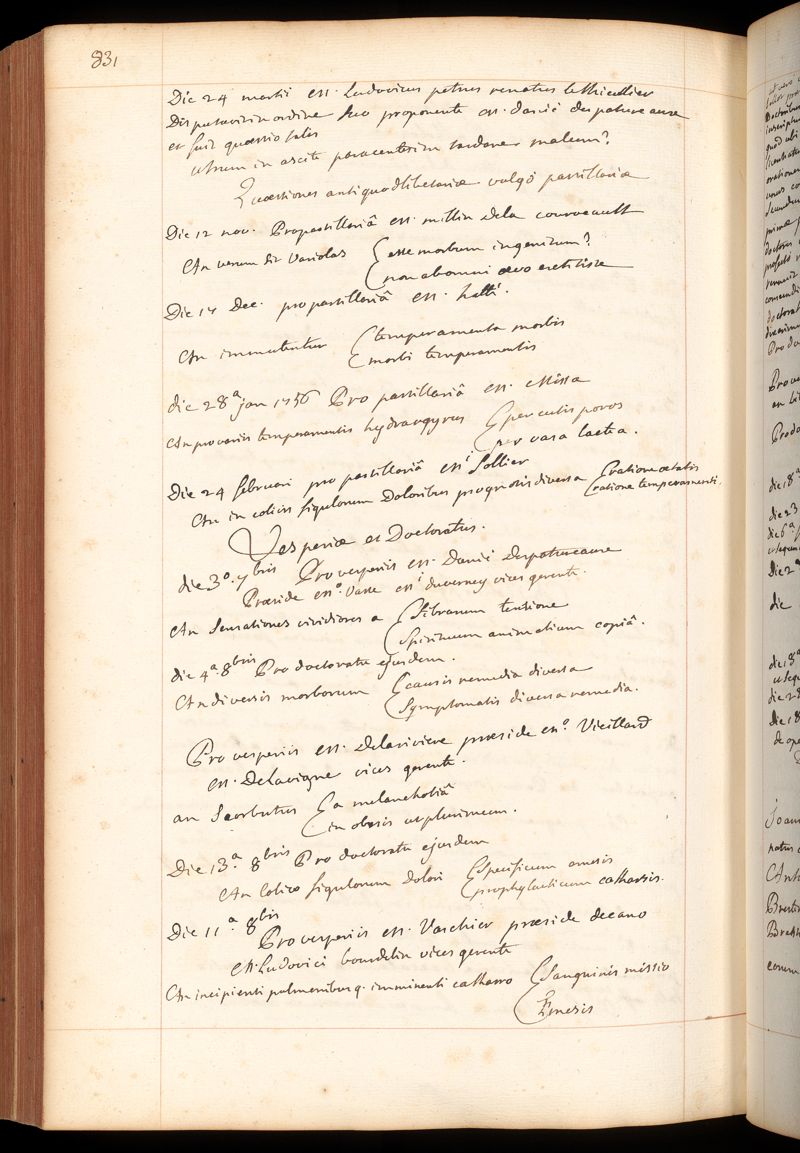 831
Die 24 martii M. Ludovicus petrus renatus lethieullier
Disputavit in ordine suo proponente M. Danié despatureaux
et fuit quæstio talis
utrum in ascite paracentesim tardare malum?
Quæstiones antiquodlibetariæ vulgò pastillariæ
Die 12 nov. Pro pastillariâ M. millin dela courveault
An verum sit Variolas { esse morbum ingenitum?
{ non ab omni ævo extitisse
Die 14 Dec. pro pastillariâ M. hatté.
An immutentur { temperamenta morbis
{ morbi temperamentis
die 28ª jan 1756 Pro pastillariâ M. Missa
An pro variis temperamentis hydrargyrus { per cutis poros
{ per vasa lactea.
Die 24 februari pro pastillariâ M. Sollier
An in colicis figulorum Doloribus prognosis diversa { ratione ætatis
{ ratione temperamenti.
Vesperiæ et Doctoratus.
die 3º. 7bris Pro vesperiis M. Danié Despatureaux
Præside Mº. Vasse M. duverney vices gerente.
An Sensationes vividiores a { fibrarum tentione
{ Spirituum animalium copiâ.
die 4ª. 8bris Pro doctoratu ejusdem.
An diversis morborum { causis remedia diversa
{ Symptomatis diversa remedia.
Pro vesperiis M. Delariviere præside Mº. Vieillard
M. Delavigne vices gerente.
an Scorbutus { a melancholiâ
{ in obesis ut plurimum.
Die 13ª. 8bris Pro doctoratu ejusdem
An Colico figulorum dolori { Specificum emesis
{ prophylacticum catharsis.
Die 11ª. 8bris
Pro vesperiis M. Vaschier præside decano
M. Ludovici bourdelin vices gerente
An incipienti pulmonibusq. imminenti catharro { Sanguinis missio
{ Emesis